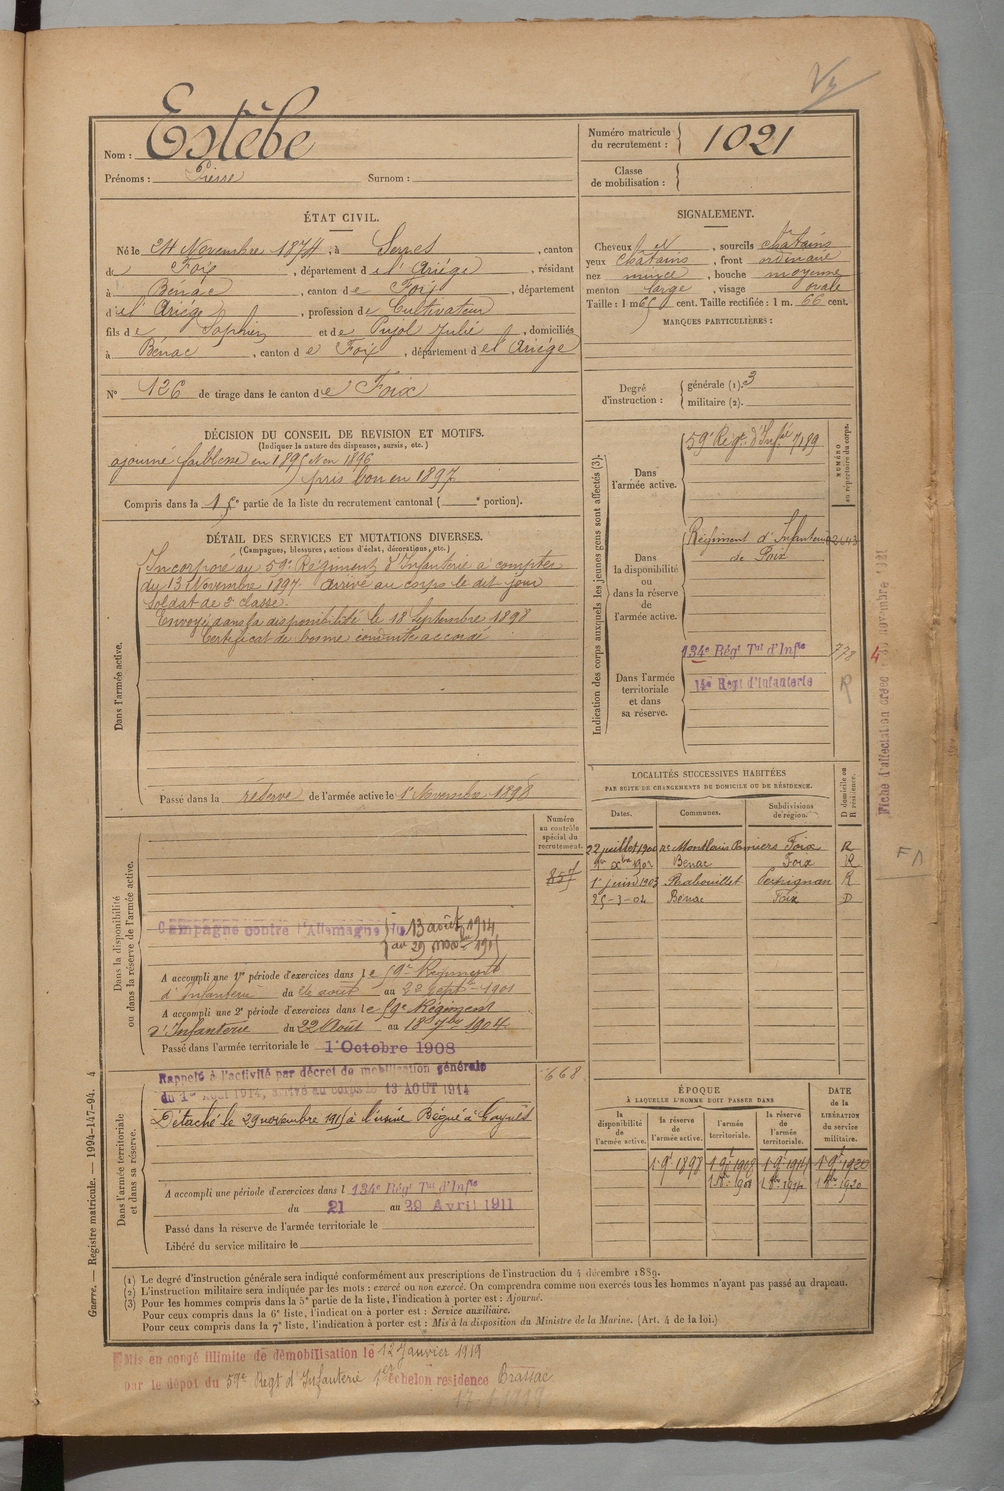 Nom : Estèbe
Prénoms : Pierre Surnom :
Numéro matricule du recrutement : 1021
Classe de mobilisation :
ÉTAT CIVIL.
Né le 24 Novembre 1874, à Serres, canton
de Foix, département de l'Ariège, résidant
à Bénac, canton de Foix, département
de l'Ariège, profession de Cultivateur
fils de Sophin et de Pujol Julie, domiciliés
à Bénac, canton de Foix, département de l'Ariège
N° 126 de tirage dans le canton de Foix
SIGNALEMENT.
Cheveux et, sourcils châtains
yeux châtains, front ordinaire
nez mince, bouche moyenne
menton large, visage ovale
Taille : 1 m 65 cent. Taille rectifiée : 1 m. 66 cent.
MARQUES PARTICULIÈRES :
Degré d'instruction : générale (1). 3
militaire (2).
DÉCISION DU CONSEIL DE REVISION ET MOTIFS.
(Indiquer la nature des dispenses, sursis, etc.)
ajourné faiblesse en 1895 et en 1896
pris bon en 1897
Compris dans la 1re partie de la liste du recrutement cantonal ( e portion).
DÉTAIL DES SERVICES ET MUTATIONS DIVERSES.
(Campagnes, blessures, actions d'éclat, décorations, etc.)
Dans l'armée active.
Incorporé au 59e Régiment d'Infanterie à compter
du 13 Novembre 1897. Arrivé au corps le dit jour
soldat de 2e classe.
Envoyé dans la disponibilité le 18 Septembre 1898
Certificat de bonne conduite accordé
Passé dans la réserve de l'armée active le 1er Novembre 1898
Indication des corps auxquels les jeunes gens sont affectés (3).
NUMÉRO au répertoire du corps.
Dans l'armée active.
59e Régt. d'Infie 7189
Dans la disponibilité ou dans la réserve de l'armée active.
Régiment d'Infanterie
de Foix
Dans l'armée territoriale et dans sa réserve.
134e Régt Tal d'Infie 778
14e Regt d'Infanterie R
4
LOCALITÉS SUCCESSIVES HABITÉES
PAR SUITE DE CHANGEMENTS DE DOMICILE OU DE RÉSIDENCE.
Dates. Communes. Subdivisions de région. D domicile ou R résidence.
22 juillet 1900 Foix R
Benac Foix R
1er juin 1903 Rabouillet Perpignan R
25-3-04 Benac Foix D
Numéro au contrôle spécial du recrutement.
857
Dans la disponibilité ou dans la réserve de l'armée active.
Campagne contre l'Allemagne du 13 août 1914
au 29 novbre 1915
A accompli une 1re période d'exercices dans le 59e Régiment
d'Infanterie du 26 août au 22 Septe 1901
A accompli une 2e période d'exercices dans le 59e Régiment
d'Infanterie du 22 Août au 18 7bre 1904
Passé dans l'armée territoriale le 1er Octobre 1908
Dans l'armée territoriale et dans sa réserve.
Rappelé à l'activité par décret de mobilisation générale
du 1er Août 1914, arrivé au corps le 13 AOUT 1914
668
Détaché le 29 novembre 1915 à l'usine
A accompli une période d'exercices dans l 134e Régt Tal d'Infie
du 21 au 29 Avril 1911
Passé dans la réserve de l'armée territoriale le
Libéré du service militaire le
ÉPOQUE
À LAQUELLE L'HOMME DOIT PASSER DANS
la disponibilité de l'armée active. la réserve de l'armée active. l'armée territoriale. la réserve de l'armée territoriale. DATE de la LIBÉRATION du service militaire.
1 9e 1898 1 9e 1908 1 9e 1914 1 9e 1920
(1) Le degré d'instruction générale sera indiqué conformément aux prescriptions de l'instruction du 4 décembre 1889.
(2) L'instruction militaire sera indiquée par les mots : exercé ou non exercé. On comprendra comme non exercés tous les hommes n'ayant pas passé au drapeau.
(3) Pour les hommes compris dans la 5e partie de la liste, l'indication à porter est : Ajourné.
Pour ceux compris dans la 6e liste, l'indication à porter est : Service auxiliaire.
Pour ceux compris dans la 7e liste, l'indication à porter est : Mis à la disposition du Ministre de la Marine. (Art. 4 de la loi.)
Guerre. — Registre matricule. — 1994-147-94. 4
Mis en congé illimité de démobilisation le 12 Janvier 1919
par le dépôt du 59e Regt d'Infanterie 1er échelon résidence Brassac